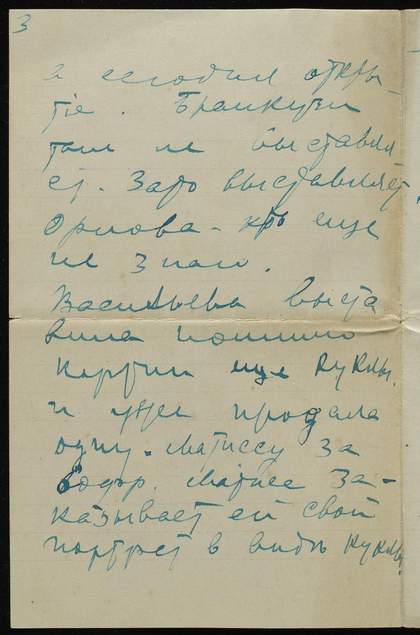 3
а сегодня откры-
тіе. Бранкузи
там не выставля
ет. Зато выставляет
Орлова - еще
не знаю.
Васильева выста
вила помимо
картин еще куклы.
и уже продала
одну. Матиссу за
Матисс за-
казывает ей свой
портрет в видѣ куклы.